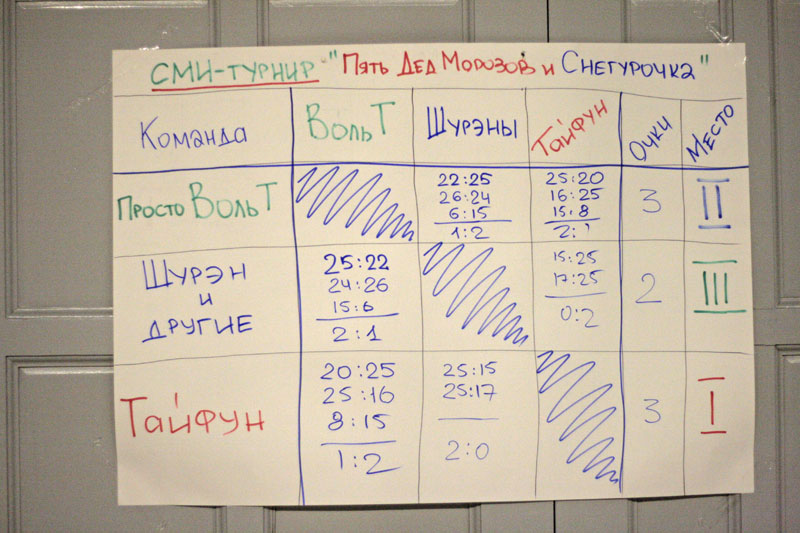 СМИ-ТУРНИР-"ПЯТЬ ДЕД МОРОЗОВ И СНЕГУРОЧКА"
Команда ВОЛЬТ ШУРЭНЫ ТАЙФУН ОЧКИ МЕСТО
ПРОСТО ВОЛЬТ 3 II
22:25 25:20
26:24 16:25
6:15 15:8
1:2 2:1
ШУРЭН И ДРУГИЕ 2 III
25:22 15:25
24:26 17:25
15:6
2:1 0:2
ТАЙФУН 3 I
20:25 25:15
25:16 25:17
8:15
1:2 2:0